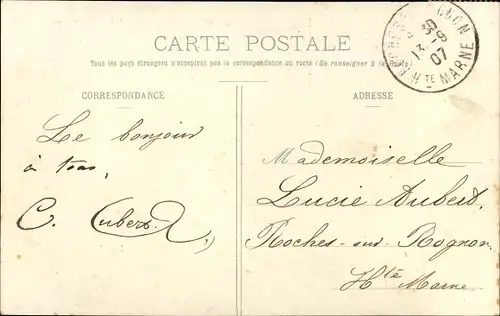 CARTE POSTALE
Tous les pays étrangers n'acceptent pas la correspondance au recto (Se renseigner à la Poste)
CORRESPONDANCE
ADRESSE
Le bonjour
à tous,
C. Aubert
Mademoiselle
Lucie Aubert
Roches-sur-Rognon
Hte Marne
13-9
07
HTE MARNE